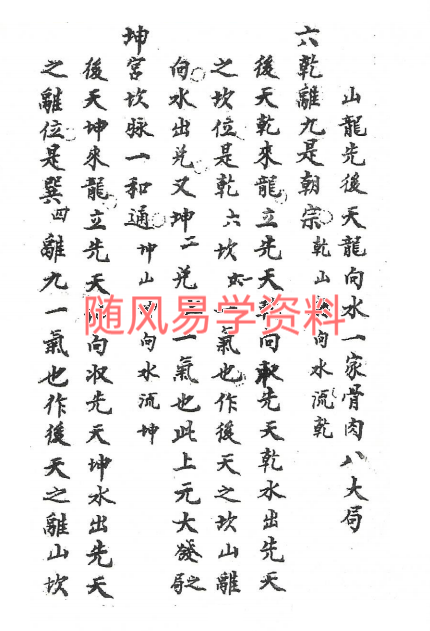 山龍先後天龍向水一家骨肉八大局
六乾離九是朝宗乾山 向水流乾
後天乾來龍立先天 向收先天乾水出先天
之坎位是乾六坎 一氣也作後天之坎山離
向水出兌又坤二兌 一氣也此上元大發之局
坤宮坎脉一和通坤山 向水流坤
後天坤來龍立先天 向收先天坤水出先天
之離位是巽四離九一氣也作後天之離山坎
随风易学资料